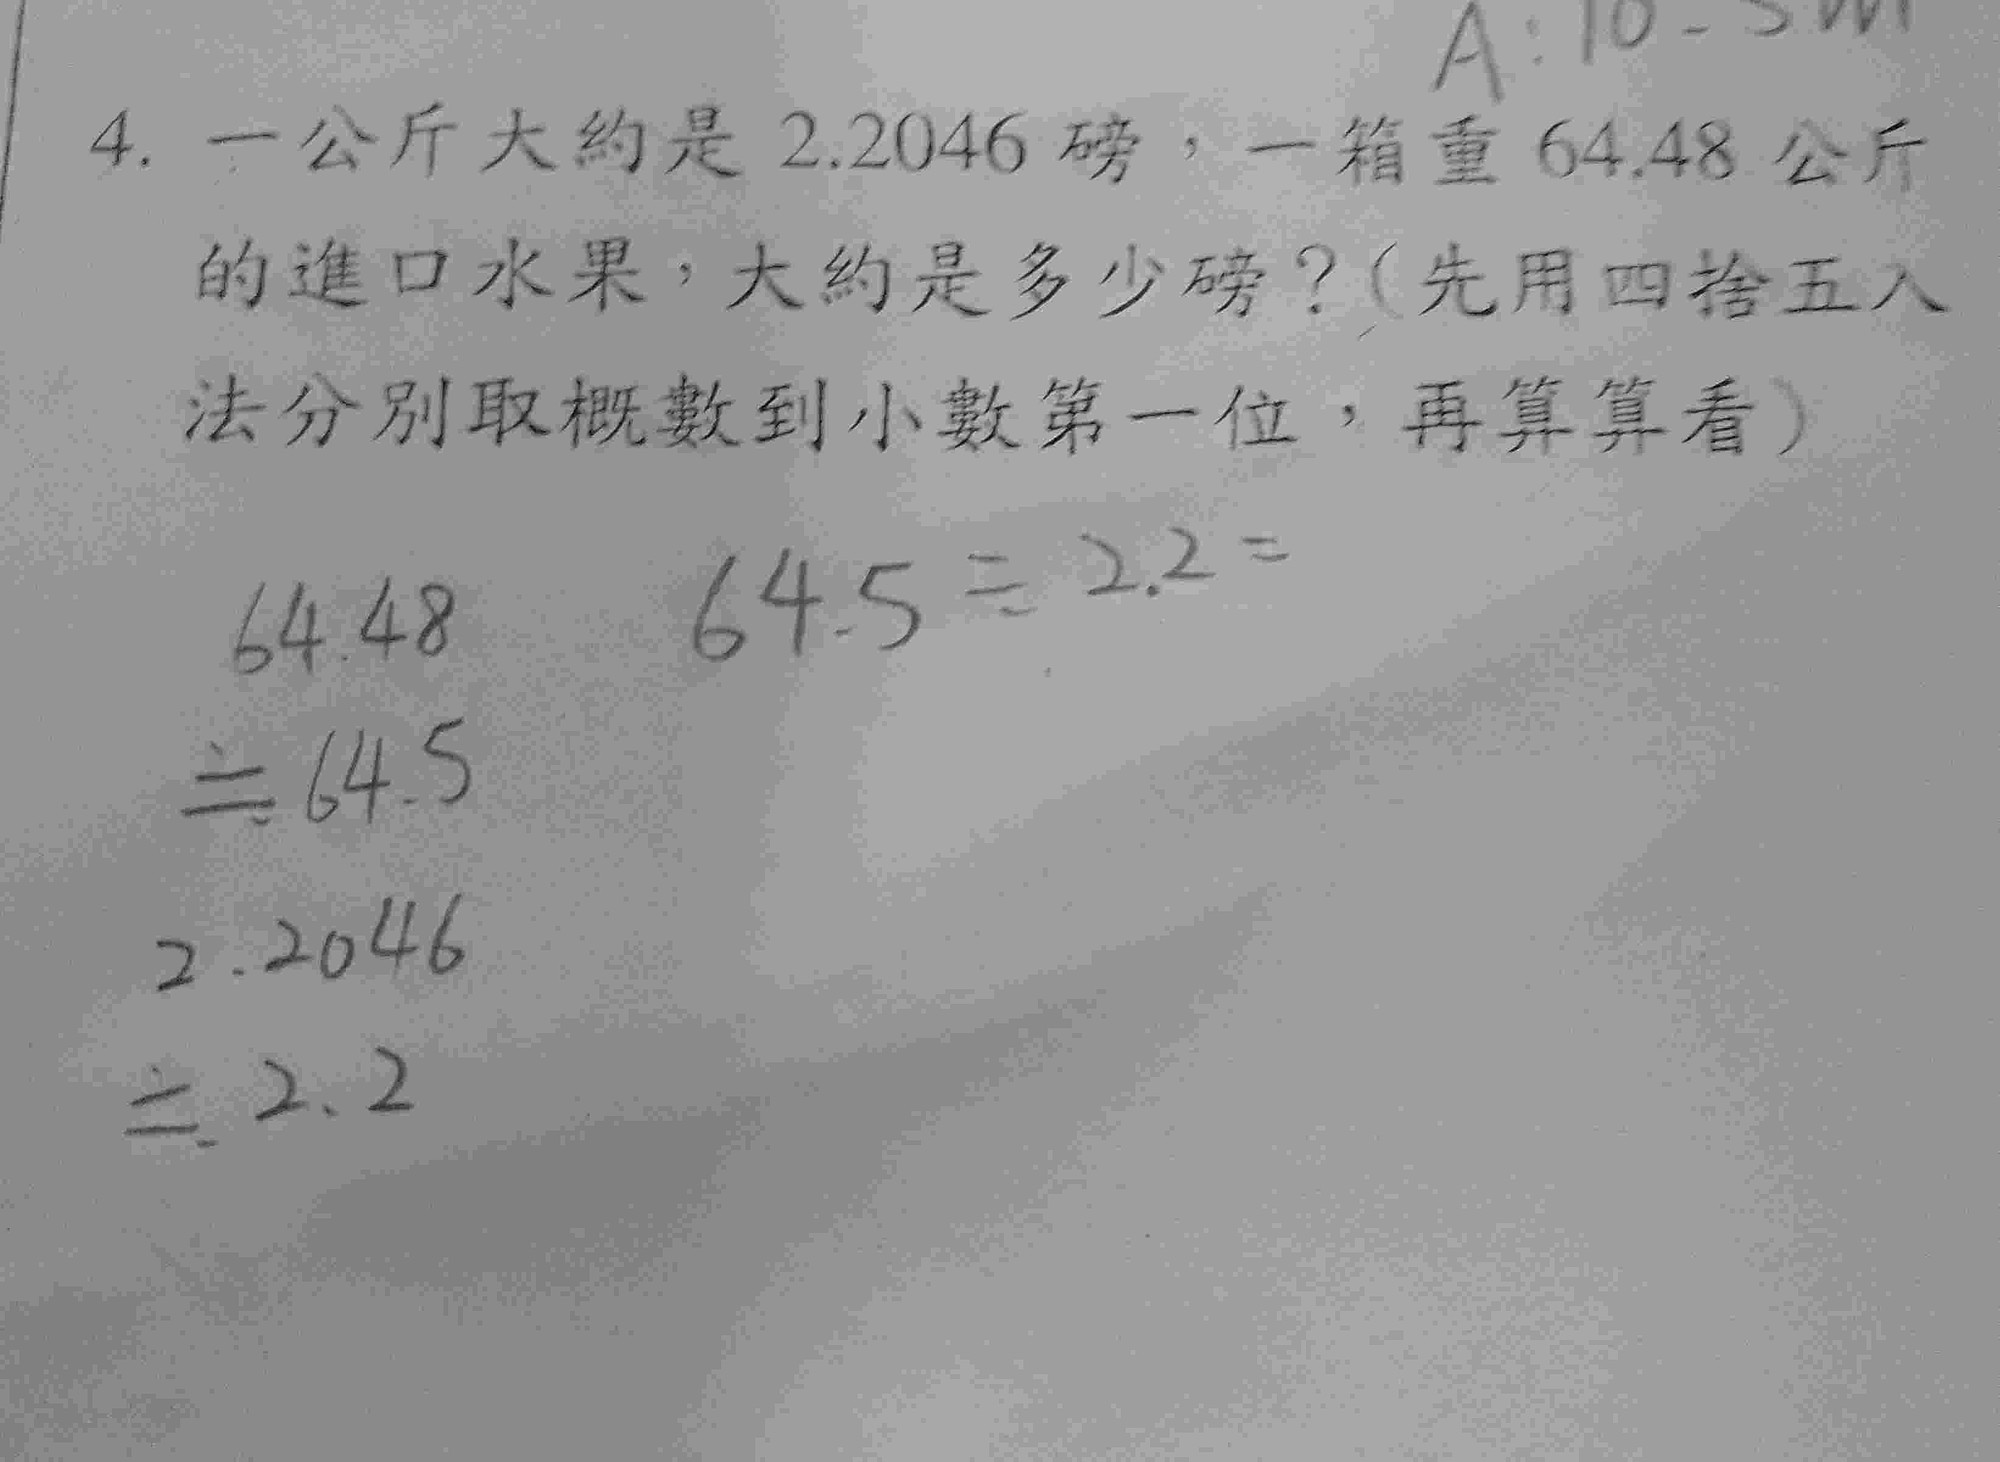 A:10.5m
4. 一公斤大約是 2.2046 磅，一箱重 64.48 公斤
的進口水果，大約是多少磅？(先用四捨五入
法分別取概數到小數第一位，再算算看)
64.48 64.5 ÷ 2.2 =
≒ 64.5
2.2046
≒ 2.2